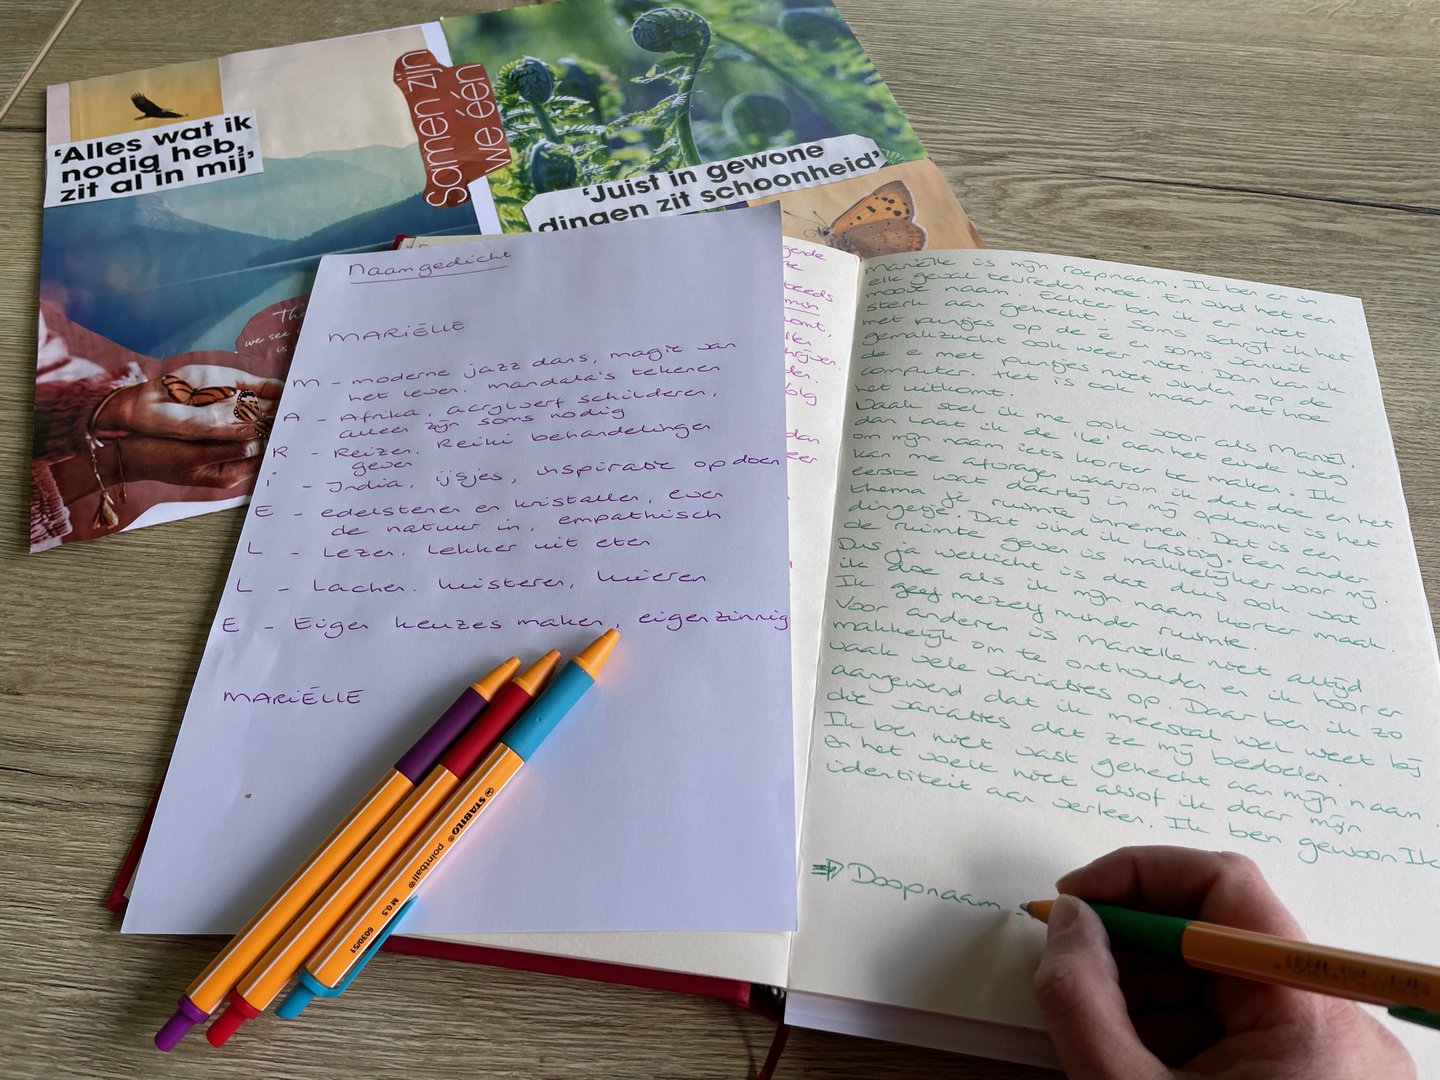 'Alles wat ik
nodig heb,
zit al in mij'
Samen zijn
we één
'Juist in gewone
dingen zit schoonheid'
we see
is
Naamgedicht
MARIËLLE
M - moderne jazz dans, magie van
het leven, mandala's tekenen
A - Afrika, acrylverf schilderen,
alleen zijn soms nodig
R - Reizen, Reiki behandelingen
geven
i - India, ijsjes, inspiratie opdoen
E - edelstenen en kristallen, even
de natuur in, empathisch
L - Lezen, Lekker uit eten
L - Lachen, luisteren, luieren
E - Eigen keuzes maken, eigenzinnig
MARIËLLE
STABILO® pointball® M 0.5 6030/51
Mariëlle is mijn roepnaam. Ik ben er in
elk geval tevreden mee. En vind het een
mooie naam. Echter ben ik er niet
sterk aan gehecht. Soms schrijf ik het
met puntjes op de ë er soms vanuit
gemakzucht ook weer niet. Dan kan ik
de e met puntjes niet vinden op de
computer. Het is ook maar net hoe
het uitkomt.
Vaak stel ik me ook voor als Mariël,
dan laat ik de 'le' aan het einde weg
om mijn naam iets korter te maken. Ik
kan me afvragen waarom ik dat doe en het
eerste wat daarbij in mij opkomt is het
thema is ruimte innemen. Dat is een
dingetje. Dat vind ik lastig. Een ander
de ruimte geven is makkelijker voor mij.
Dus ja wellicht is dat dus ook wat
ik doe als ik mijn naam korter maak.
Ik geef mezelf minder ruimte.
Voor anderen is Mariëlle niet altijd
makkelijk om te onthouden en ik hoor er
vaak vele variaties op. Daar ben ik zo
aangewend dat ik meestal wel weet bij
die variaties dat ze mij bedoelen.
Ik ben niet vast gehecht aan mijn naam.
En het voelt niet alsof ik daar mijn
identiteit aan verleen. Ik ben gewoon Ik
⇒ Doopnaam -